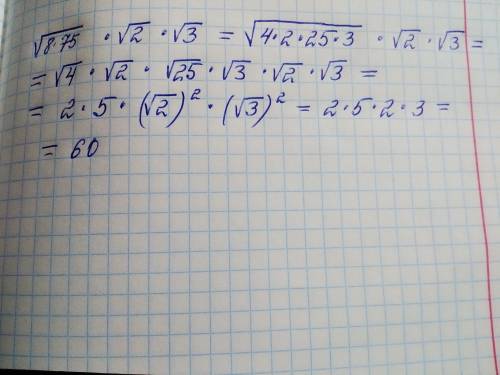 √8·75 · √2 · √3 = √4·2·25·3 · √2 · √3 =
= √4 · √2 · √25 · √3 · √2 · √3 =
= 2 · 5 · (√2)² · (√3)² = 2 · 5 · 2 · 3 =
= 60